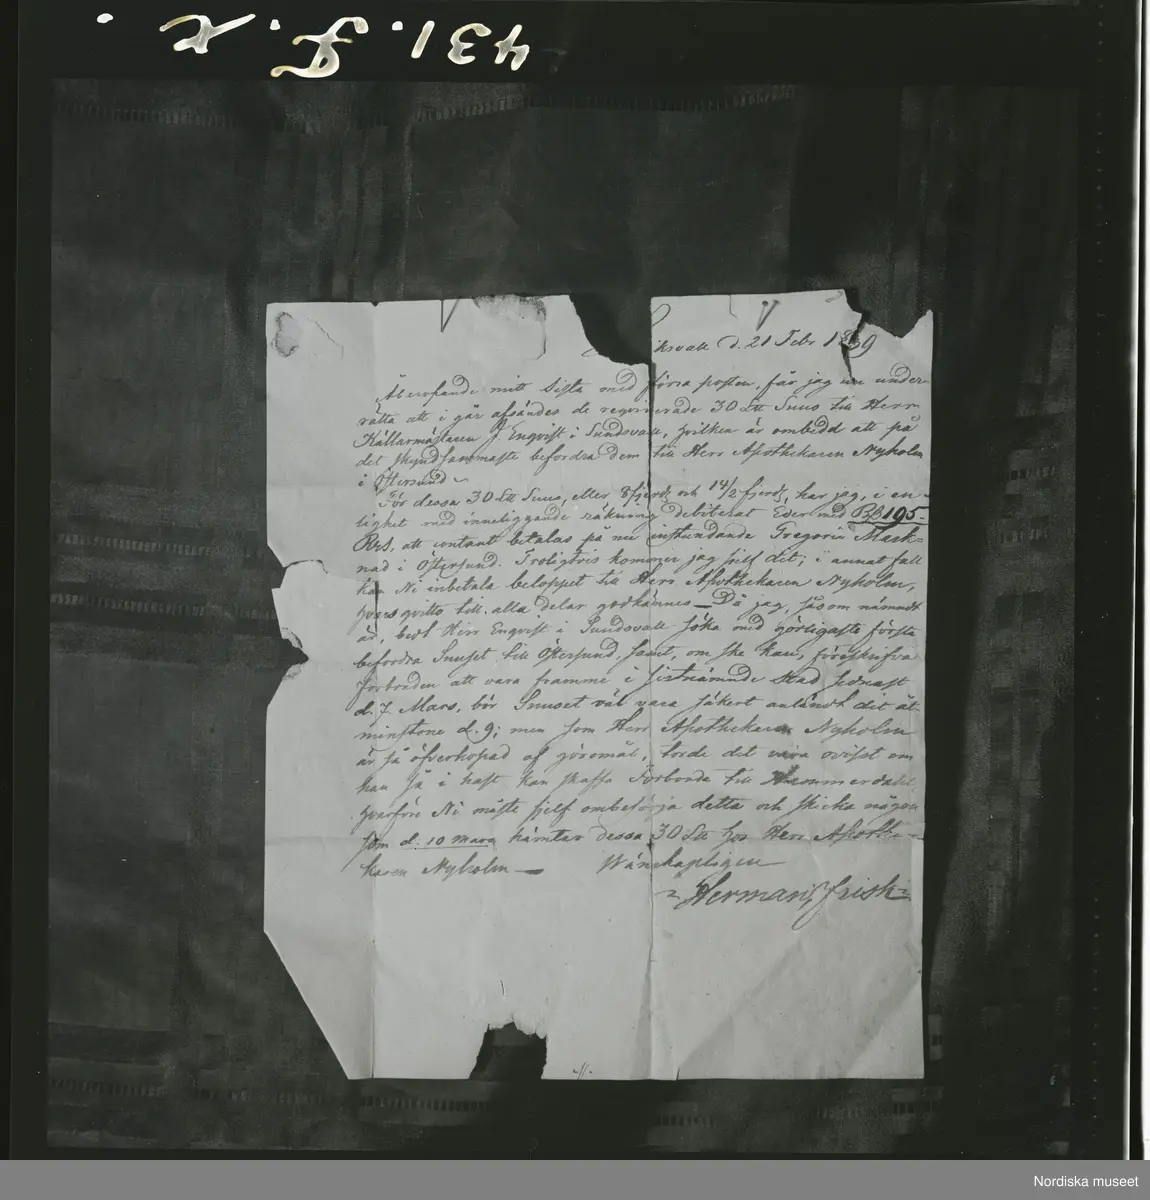 431. F. t.
iksvall d. 21 Febr 1839
Åberopande mitt sista med förra posten, får jag nu under-
rätta att i går afsändes de requirerade 30 Ltt Snus till Herr
Källarmästaren J Enqvist i Sundsvall, hvilken är ombedd att på
det skyndsammaste befordra dem till Herr Apothekaren Nyholm
i Östersund
För dessa 30 Ltt Snus, eller 8 fjerd. och 14/2 fjerd., har jag, i en-
lighet med inneliggande räkning debiterat Eder med 195.
Rgs. att contant betalas på nu instundande Gregorii Mark-
nad i Östersund. Troligtvis kommer jag sjelf dit; i annat fall
kan Ni inbetala beloppet till Herr Apothekaren Nyholm,
hvars qvitto till alla delar godkännes — Då jag, såsom nämndt
är, bedt Herr Enqvist i Sundsvall söka med görligaste första
befordra Snuset till Östersund, samt, om ske kan, föreskrifva
Forbonden att vara framme i sistnämnde Stad senast
d. 7 Mars, bör Snuset väl vara säkert anländt dit åt-
minstone d. 9; men som Herr Apothekaren Nyholm
är så öfverhopad af göromål, torde det vara ovisst om
han så i hast kan skaffa Forbonde till Hammerdahl
hvarföre Ni måste sjelf ombesörja detta och skicka någon
som d. 10 Mars hämtar dessa 30 Ltt hos Herr Apothe-
karen Nyholm — Wänskapligen
Herman Frisk
Nordiska museet